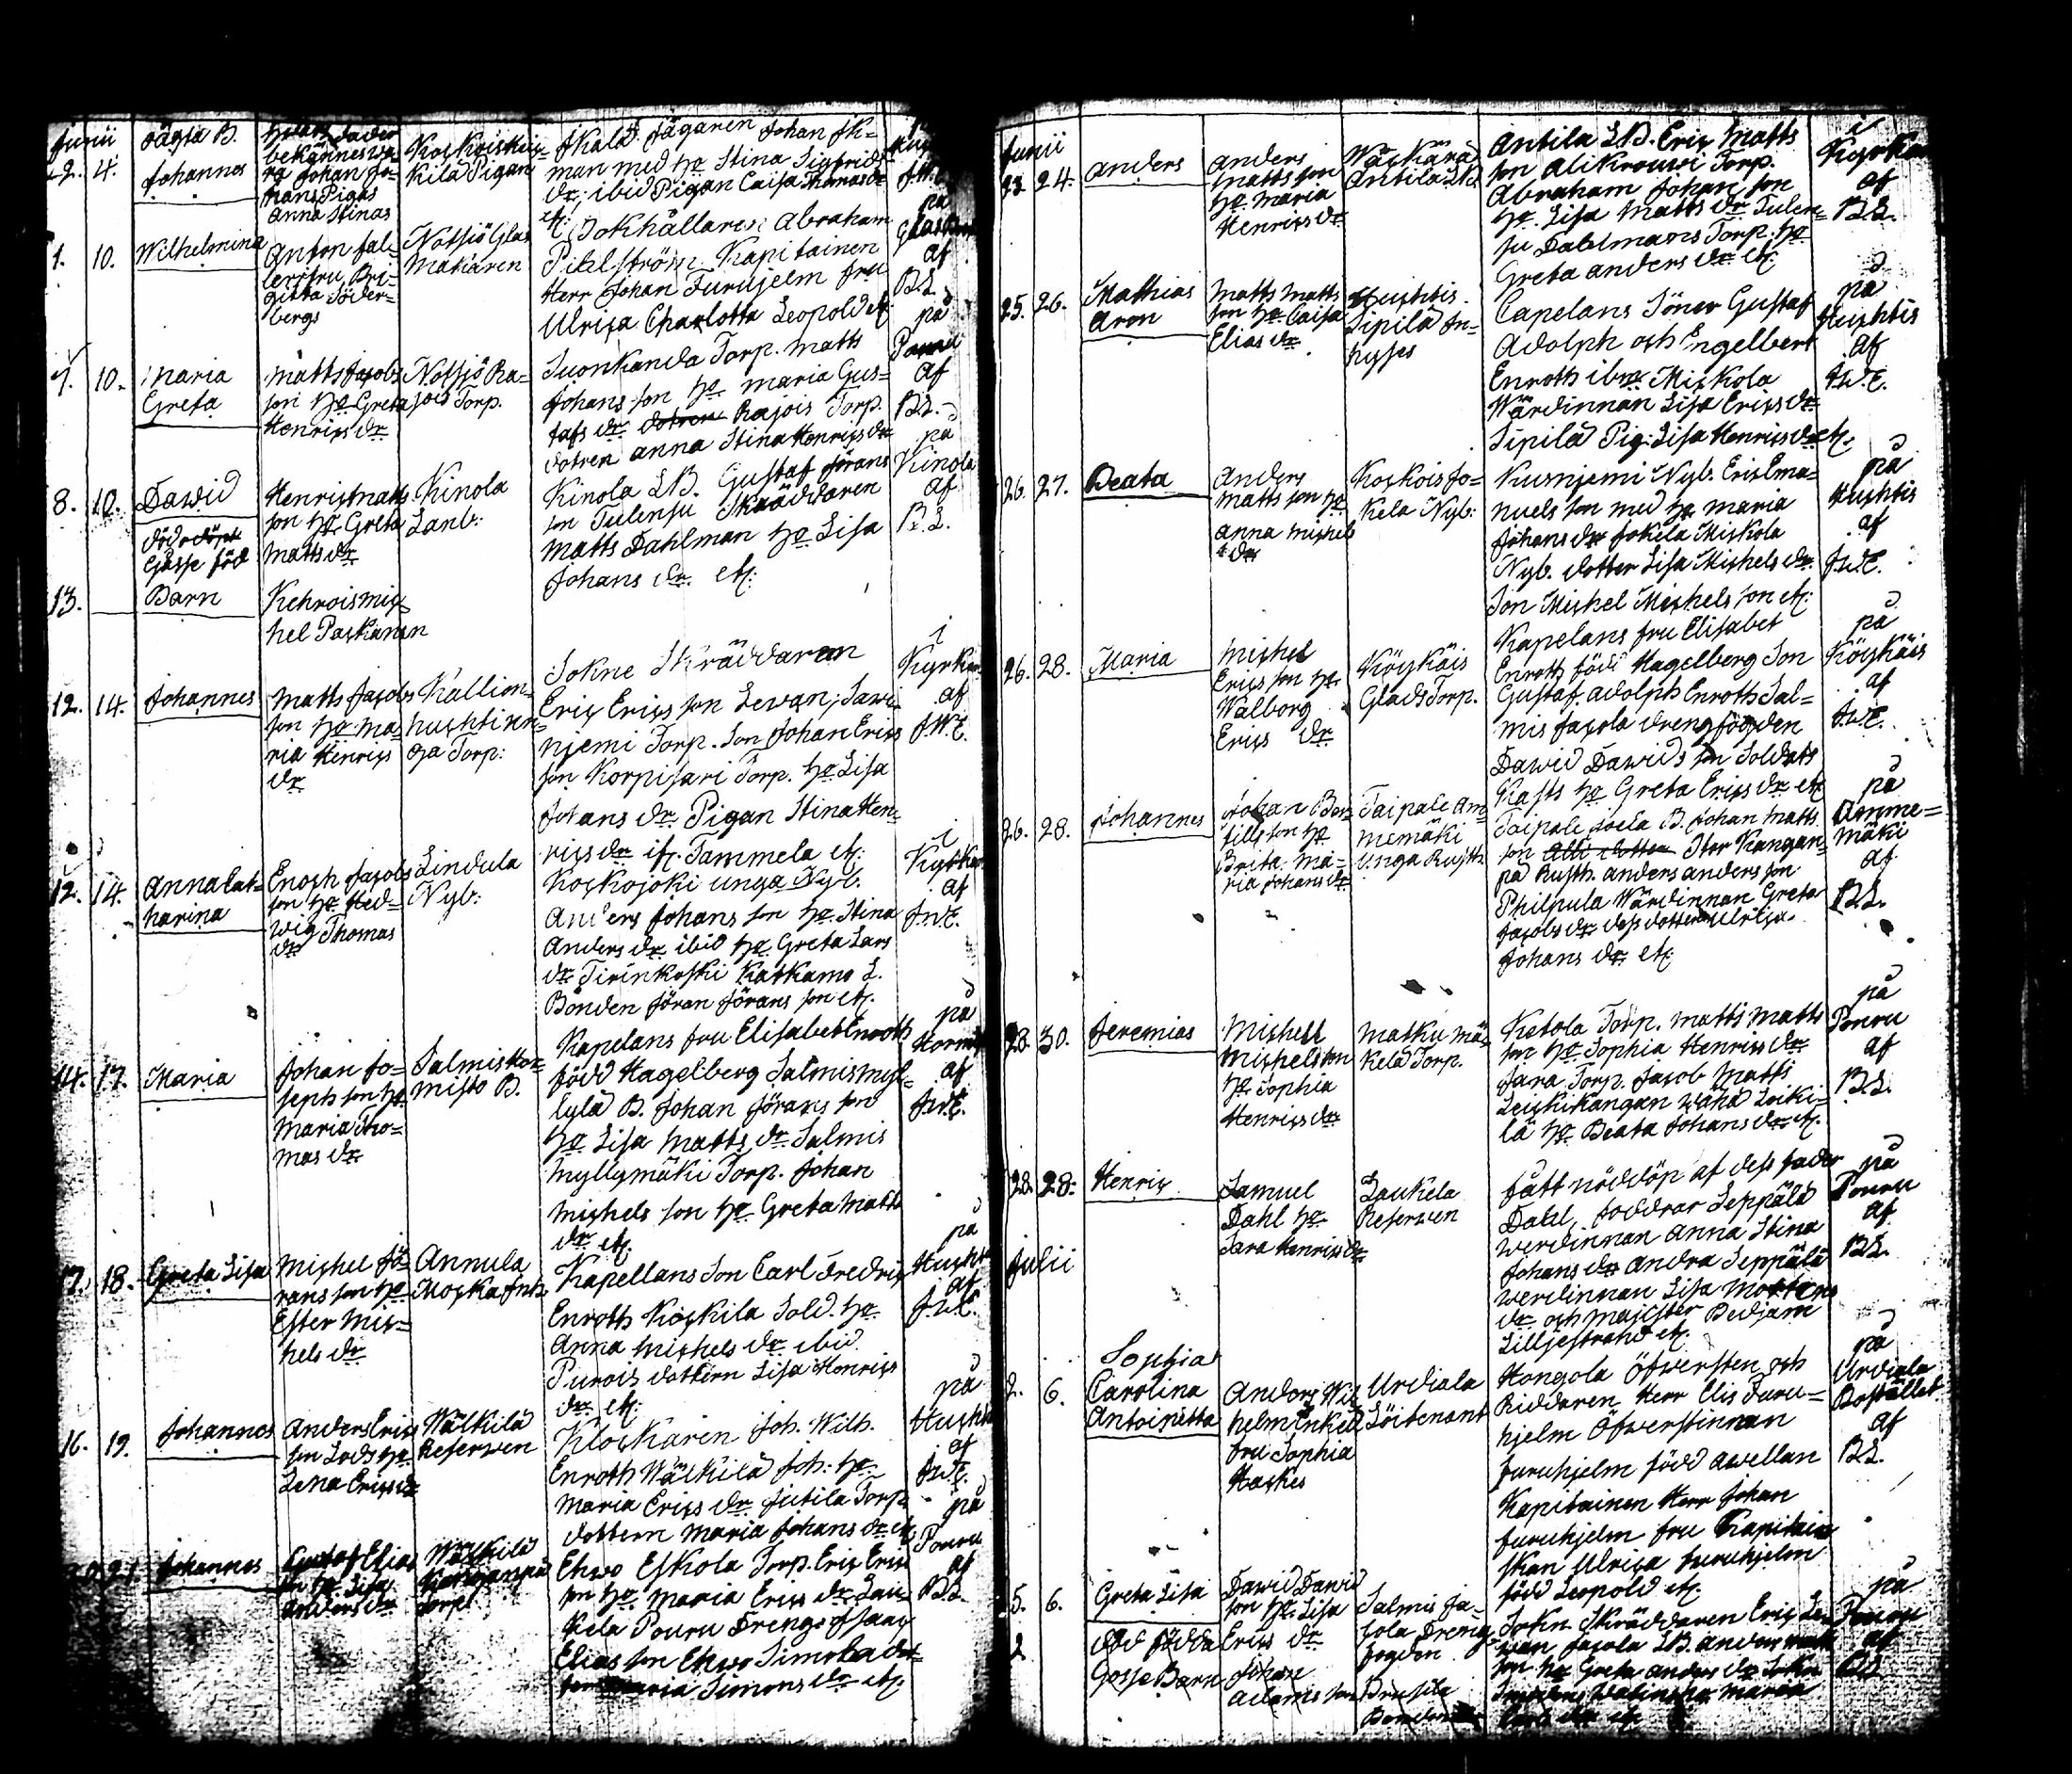 Junii
2. 4.
oägta B.
Johannes
bekännes wa-
ra Johan Jo-
hans Pigas
Anna Stinas
Koskois Kus-
kila Pigan
Skald. Jägaren Johan Ek-
man med ho Stina Sigfrids
dr. ibid Pigan Caisa Thomas dr
etc.
J.W.E.
7. 10.
Wilhelmina
Anton Fal-
ler fru Bri-
gitta Söder-
bergs
Notsjö Glas
makaren
Bokhållaren Abraham
Pihlström. Kapitainen
Herr Johan Furuhjelm fru
Ulrica Charlotta Leopold etc
på
Glasbruk
af
B.L.
7. 10.
Maria
Greta
Matts Jacobs
son ho Greta
Henrics dr
Notsjö Ra-
jois Torp.
Suonkanda Torp. Matts
Johans son ho Maria Gus-
tafs dr. Rajois Torp.
dotren Anna Stina Henrics dr
på
Pouru
af
B.L.
8. 10.
Dawid
Henric Matts
son ho Greta
Matts dr
Kinola
Lanb:
Kinola L.B. Gustaf Jörans
son Tulensu Skräddaren
Matts Dahlman ho Lisa
Johans dr. etc:
på
Kinola
af
B.L.
13.
död
Gåsse född
Barn
Kehrois Mic
hel Packanen
12. 14.
Johannes
Matts Jacobs
son ho Ma-
ria Henrics
dr
Kallion-
huchti
Torp:
Sokne Skräddaren
Eric Erics son Levan; Savi-
njemi Torp. Son Johan Erics
son Korpisari Torp. ho Lisa
Johans dr. Pigan Stina Hen-
rics dr if. Tammela etc:
i
Kyrkan
af
J.W.E.
12. 14.
Anna Cat-
harina
Enoch Jacobs
son ho Hed-
wig Thomas
dr
Lindula
Nyb:
Koskojoki unga Nyb.
Anders Johans son ho Stina
Anders dr ibid ho Greta Lars
dr Tirinkoski Katkamo L.
Bonden Jöran Jörans son etc.
i
Kyrkan
af
J.W.E.
14. 17.
Maria
Johan Jo-
sephs son ho
Maria Tho-
mas dr
Salmis Hor-
misto B.
Kapelans fru Elisabet Enroth
född Hagelberg Salmis Myl-
lylä B. Johan Jörans son
ho Lisa Matts dr Salmis
Myllymäki Torp. Johan
Michels son ho Greta Matts
dr etc.
på
af
J.W.E.
17. 18.
Greta Lisa
Michel Jö-
rans son ho
Ester Mic-
hels dr
Annula
Moska Inh.
Kapellans Son Carl Fredric
Enroth Koskila Sold. ho
Anna Michels dr ibid.
Purois dottern Lisa Henrics
dr etc.
på
Huchtis
af
J.W.E.
16. 19.
Johannes
Anders Erics
son Lods ho
Lena Erics dr
Wälkilä
Reserven
Klockaren Joh. Wilh.
Enroth Wälkilä Joh: ho
Maria Erics dr Jutila Torp.
dottern Maria Johans dr etc
på
Huchtis
af
J.W.E.
21.
Johannes
Gustaf Elias
son ho Lisa
Anders dr
Wälkilä
Torp.
Ehwo Eskola Torp. Eric Erics
son ho Maria Erics dr Lau-
kela Pouru Dreng Isaac
Elias son Ehwo Simola dot-
tern Maria Simons dr etc.
på
Pouru
af
B.L.
Junii
23. 24.
Anders
Anders
Matts son
ho Maria
Henrics dr
Antila L.B.
Antila L.B. Eric Matts
son Alikrouwi Torp.
Abraham Johan son
ho Lisa Matts dr Tulen-
su Dahlmans Torp. ho
Greta Anders dr etc.
i
Kyrkan
af
B.L.
25. 26.
Mathias
Aron
Matts Matts
son ho Caisa
Elias dr
Huchtis
Sipilä In-
hyses
Capelans Söner Gustaf
Adolph och Engelbert
Enroth ibm. Miskola
Wärdinnan Lisa Erics dr
Sipilä Pig. Lisa Henrics dr etc.
på
Huchtis
af
J.W.E.
26. 27.
Beata
Anders
Matts son ho
Anna Michels
dr
Koskois Jo-
kela Nyb:
Kusnjemi Nyb. Eric Ema-
nuels son med ho Maria
Johans dr Jokela Miskola
Nyb. dotter Lisa Michels dr.
Son Michel Michels son etc:
på
Huchtis
af
J.W.E.
26. 28.
Maria
Michel
Erics son ho
Walborg
Erics dr
Köyckäis
Glads Torp.
Kapelans fru Elisabet
Enroth född Hagelberg Son
Gustaf Adolph Enroth Sal-
mis Jacola drengfogden
Dawid Dawids son Soldats
Kasts ho Greta Erics dr etc
på
Köyckäis
af
J.W.E.
26. 28.
Johannes
Johan Ber-
tills son ho
Brita Ma-
ria Johans dr
Taipale Am-
memäki
unga Rusth.
Taipale Joela B. Johan Matts
son Stor Kangan-
pä Rusth. Anders Anders son
Philpula Wärdinnan Greta
Jacobs dr dess dottern Ulrica
Johans dr etc.
på
Amme-
mäki
af
B.L.
28. 30.
Jeremias
Michel
Michels son
ho Sophia
Henrics dr
Matku Mä-
kelä Torp.
Ketola Torp. Matts Matts
son ho Sophia Henrics dr
Jara Torp. Jacob Matts
Leickikangan Loiki-
lä ho Beata Johans dr etc.
på
Pouru
af
B.L.
28. 28.
Henric
Samuel
Dahl ho
Sara Henrics dr
Laukela
Reserven
fått nöddop af dess fader
Dahl, foddrar Seppälä
werdinnan Anna Stina
Johans dr andra Seppälä
werdinnan Lisa Mortens
dr och Majister Bedjam
Lilljestrand etc.
på
Pouru
af
B.L.
Julii
2. 6.
Sophia
Carolina
Antoinetta
Anders Wil
helm Enkel
fru Sophia
Haskes
Urdiala
Löitenant
Hongola Öfwersten och
Riddaren Herr Elis Furu-
hjelm Öfwerstinnan
Furuhjelm född Awellan
Kapitainen Herr Johan
Furuhjelm fru Kapitain
skan Ulrica Furuhjelm
född Leopold etc.
på
Urdiala
Bostället
af
B.L.
5. 6.
Greta Lisa
Dawid Dawid
son ho Lisa
Erics dr
Salmis Ja-
cola Dreng-
fogden
Sokn. Skräddaren Eric Le-
van Jacola L.B. Anders Matts
son ho Greta Anders dr Sokn
på
Pouru
af
B.L.
2
död födda
Gosse Barn
Johan
Adams son